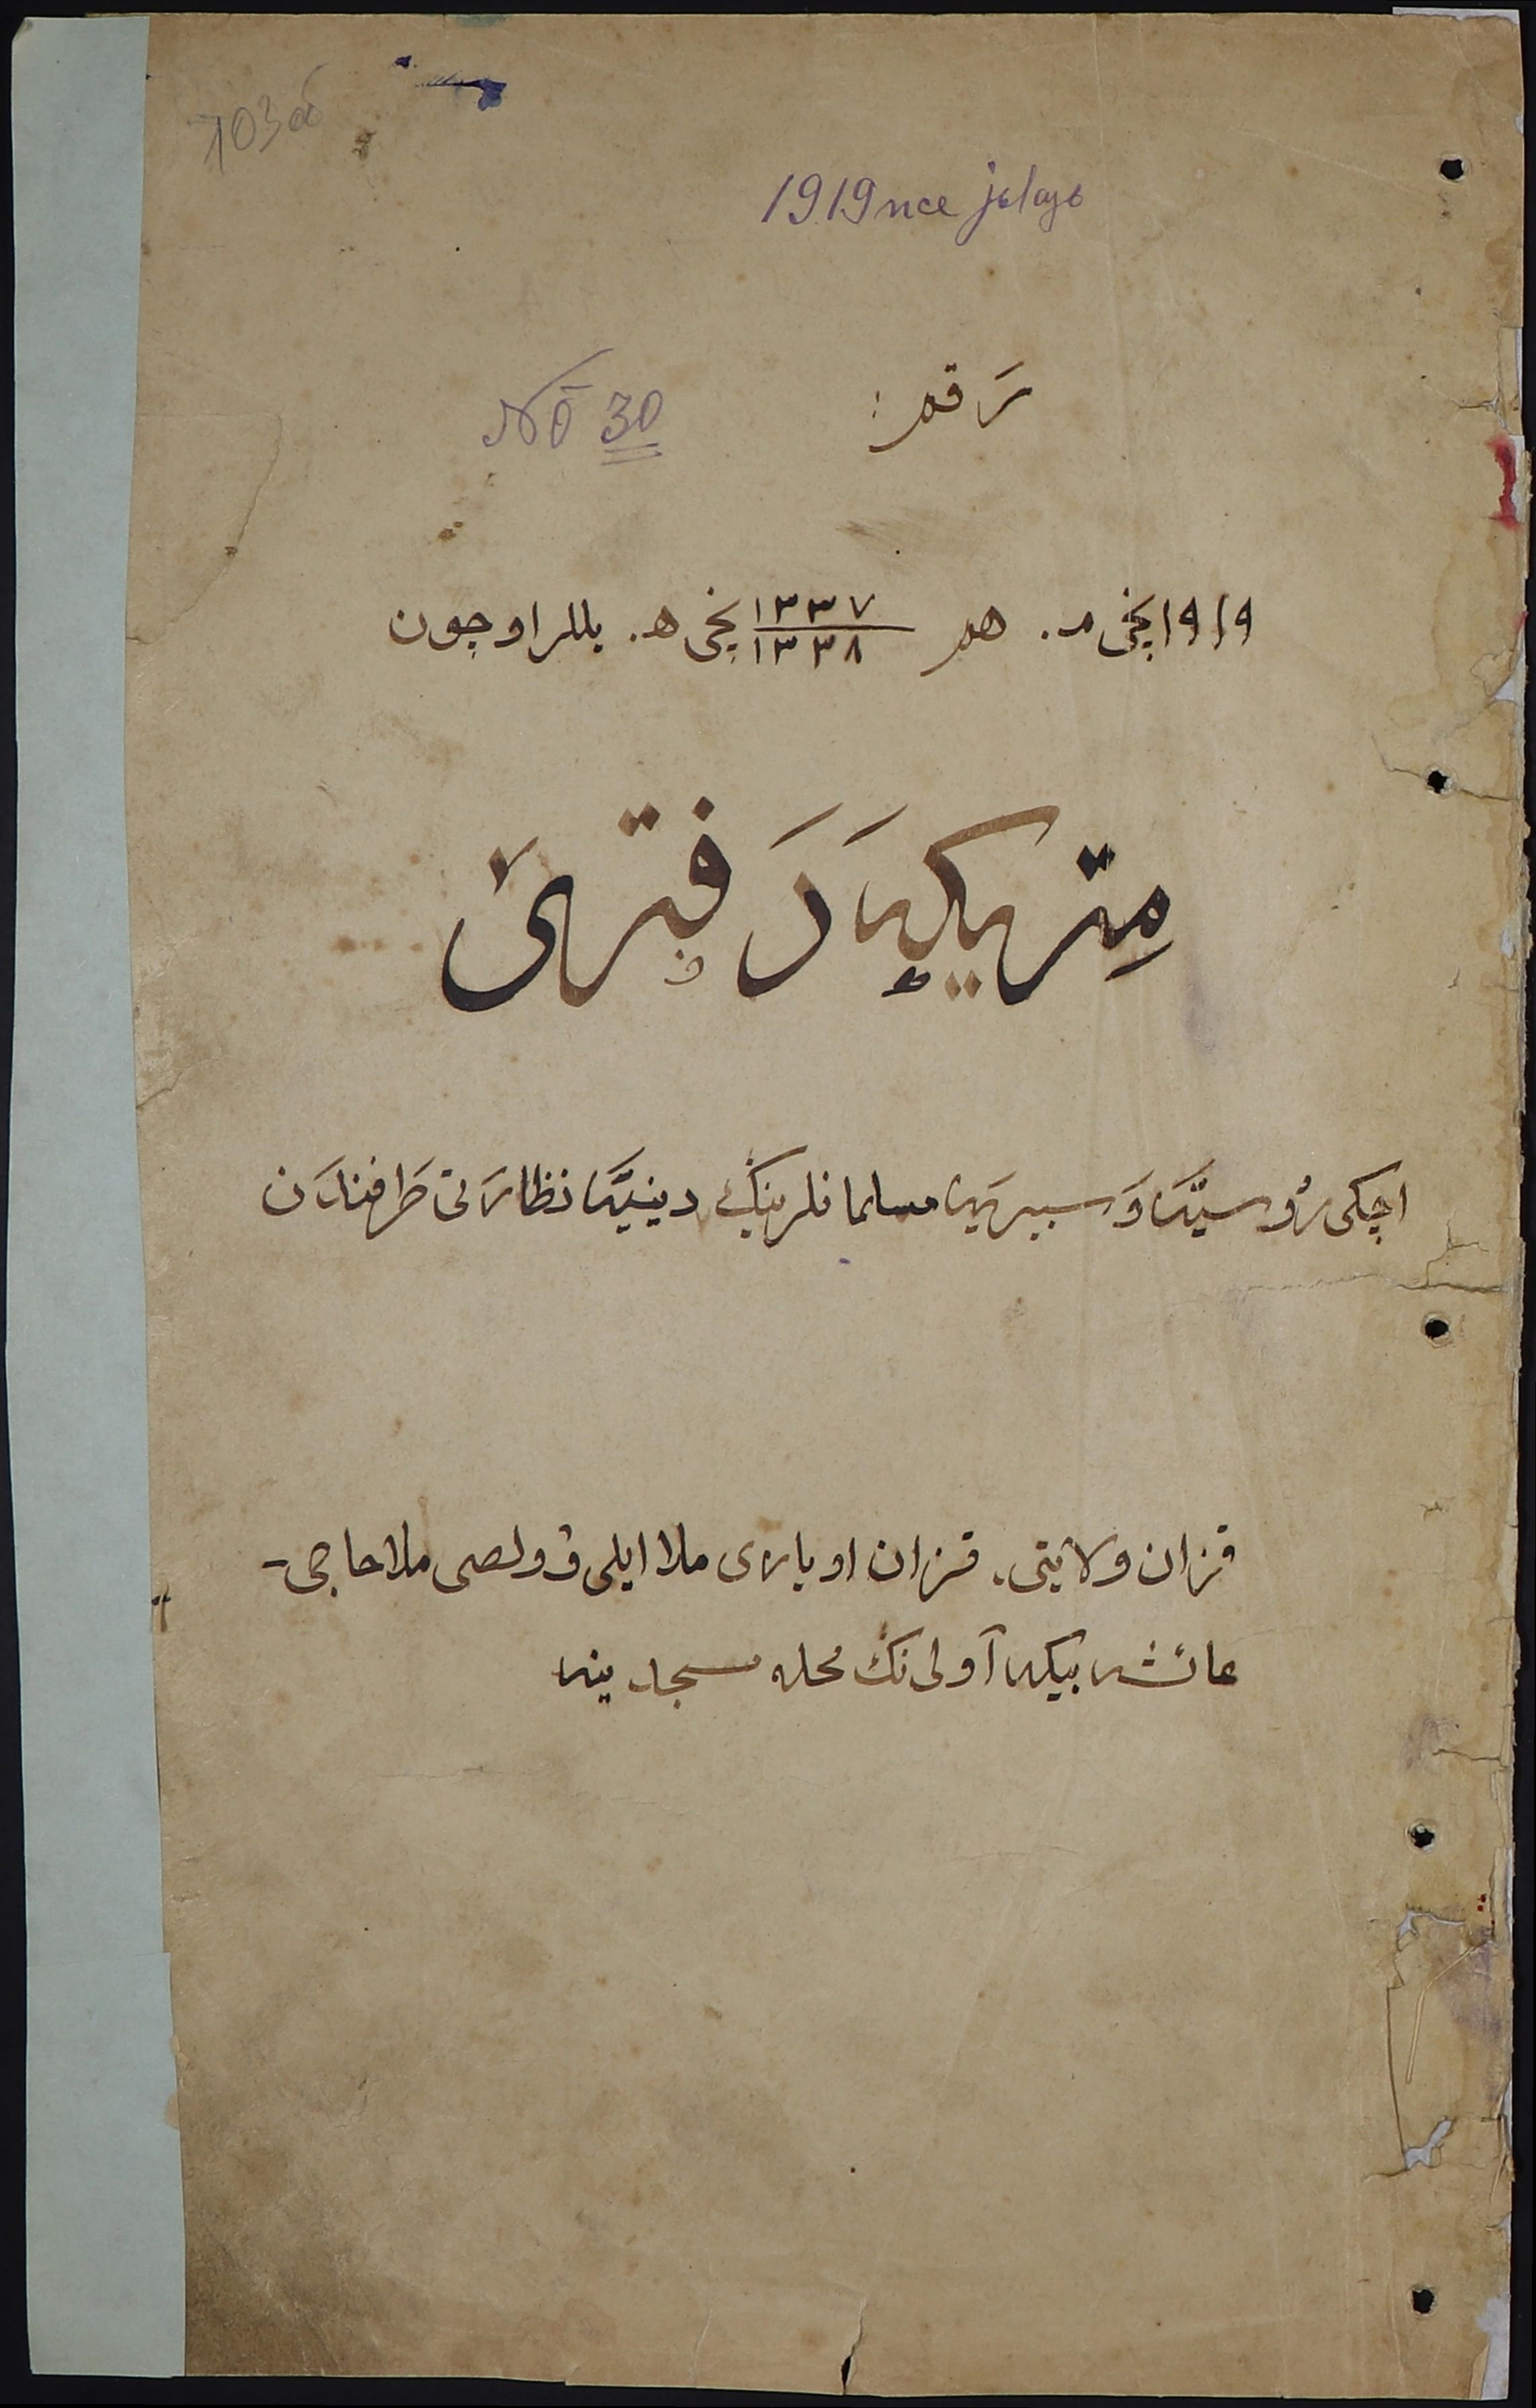 103об
1919nce jelgь
رَقم: № 30
١٩١٩ نچی م. هم ١٣٣٧ / ١٣٣٨ نچی ھ. یللر اوچون
مِتریكه دَفتری
اچكی رُوسیَّه وَ سبیریَه مسلمانلرینڭ دینیَّه نظارَتی طَرفندَن
قزان ولایتی، قزان اویازی ملا ایلی ڤولصی ملا حاجی-
عائشه بیكه آولی نڭ محله مسجدینه